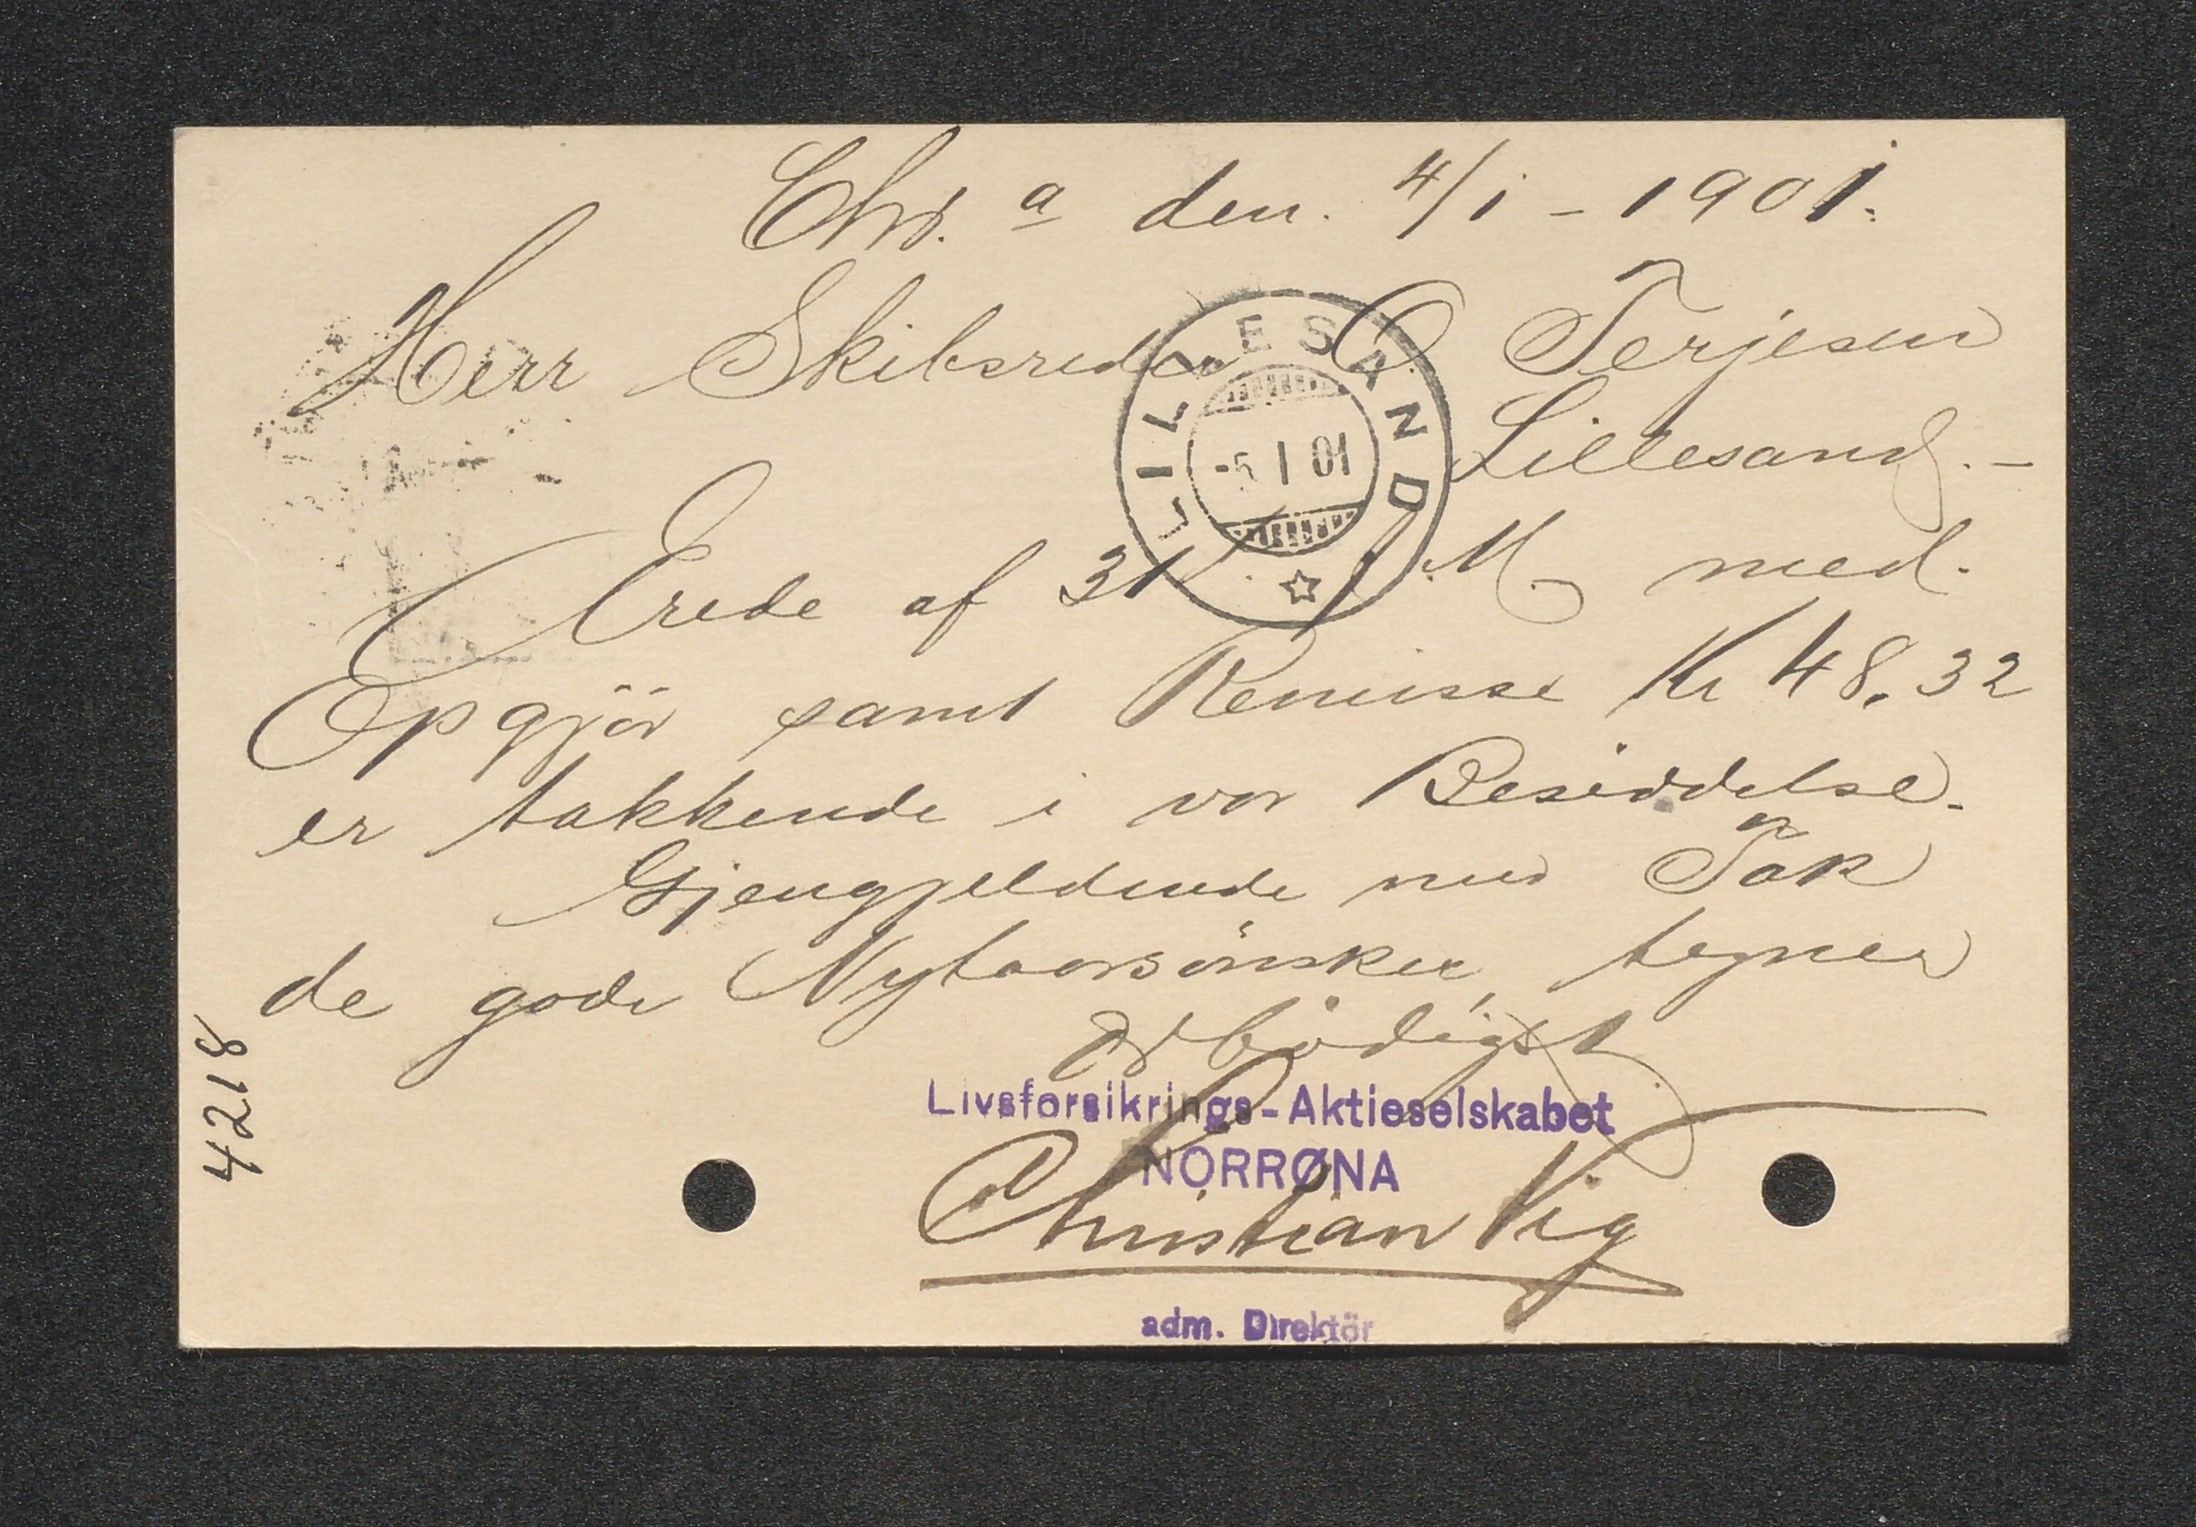 Chr.a den. 4/1 - 1901.
Herr Skibsreder O. Terjesen
Lillesand. -
LILLESAND
-5 I 01
Ærede af 31 f. M. med
Opgjör samt Remisse Kr 48.32
er takkende i vor Besiddelse.
Gjengjeldende med Tak
de gode Nytaarsönsker, tegner
ærbödigst
Livsforsikrings-Aktieselskabet
NORRØNA
Christian Vig
adm. Direktör
4218